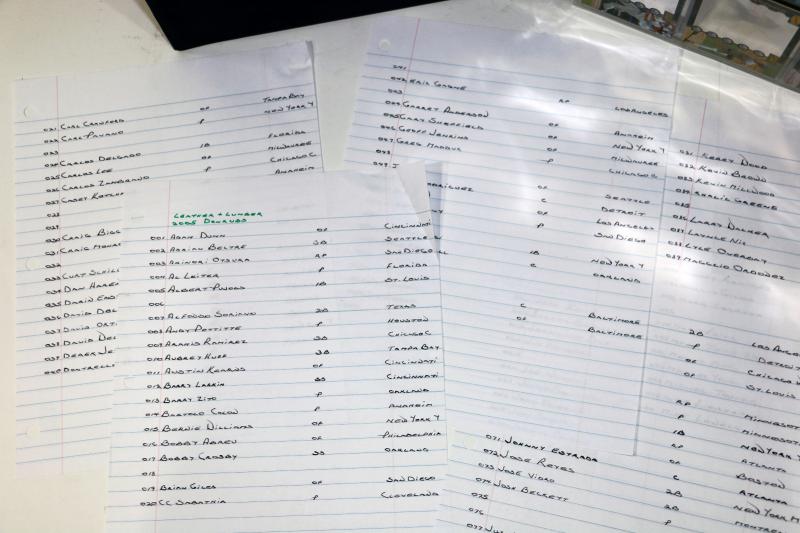 021 CARL CRAWFORD OF TAMPA BAY
022 CARL PAVANO P NEW YORK Y
023
024 CARLOS DELGADO 1B FLORIDA
025 CARLOS LEE OF MILWAUKEE
026 CARLOS ZAMBRANO P CHICAGO C
027 CASEY P ANAHEIM
028
029
030 CRAIG
031 CRAIG
032
033 CURT
034 DAN
035 DARIN
036 DAVID
037 DAVID
038 DAVID
039 DEREK
040 DONTRELLE
LEATHER + LUMBER
2005 DONRUSS
001 ADAM DUNN OF CINCINNATI
002 ADRIAN BELTRE 3B SEATTLE
003 AKINORI OTSUKA RP SAN DIEGO
004 AL LEITER P FLORIDA
005 ALBERT PUJOLS 1B ST. LOUIS
006
007 ALFONSO SORIANO 2B TEXAS
008 ANDY PETTITTE P HOUSTON
009 ARAMIS RAMIREZ 3B CHICAGO C
010 AUBREY HUFF 3B TAMPA BAY
011 AUSTIN KEARNS OF CINCINNATI
012 BARRY LARKIN SS CINCINNATI
013 BARRY ZITO P OAKLAND
014 BARTOLO COLON P ANAHEIM
015 BERNIE WILLIAMS OF NEW YORK Y
016 BOBBY ABREU OF PHILADELPHIA
017 BOBBY CROSBY SS OAKLAND
018
019 BRIAN GILES OF SAN DIEGO
020 CC SABATHIA P CLEVELAND
041
042 ERIC GAGNE RP LOS ANGELES
043
044 GARRET ANDERSON OF ANAHEIM
045 GARY SHEFFIELD OF NEW YORK Y
046 GEOFF JENKINS OF MILWAUKEE
047 GREG MADDUX P CHICAGO
049 J
OF SEATTLE
C DETROIT
P LOS ANGELES
SAN DIEGO
1B NEW YORK Y
C OAKLAND
C BALTIMORE
OF BALTIMORE
KERRY WOOD
KEVIN BROWN
KEVIN MILLWOOD
KHALIL GREENE
LARRY WALKER
LAYNCE NIX
LYLE OVERBAY
MAGGLIO ORDONEZ
2B LOS ANGELES
P DETROIT
OF CHICAGO
OF ST. LOUIS
RP MINNESOTA
P MINNESOTA
1B NEW YORK
RP ATLANTA
OF BOSTON
071 JOHNNY ESTRADA C ATLANTA
072 JOSE REYES 2B NEW YORK M
073 JOSE VIDRO 2B MONTREAL
074 JOSH BECKETT P
075
076
077